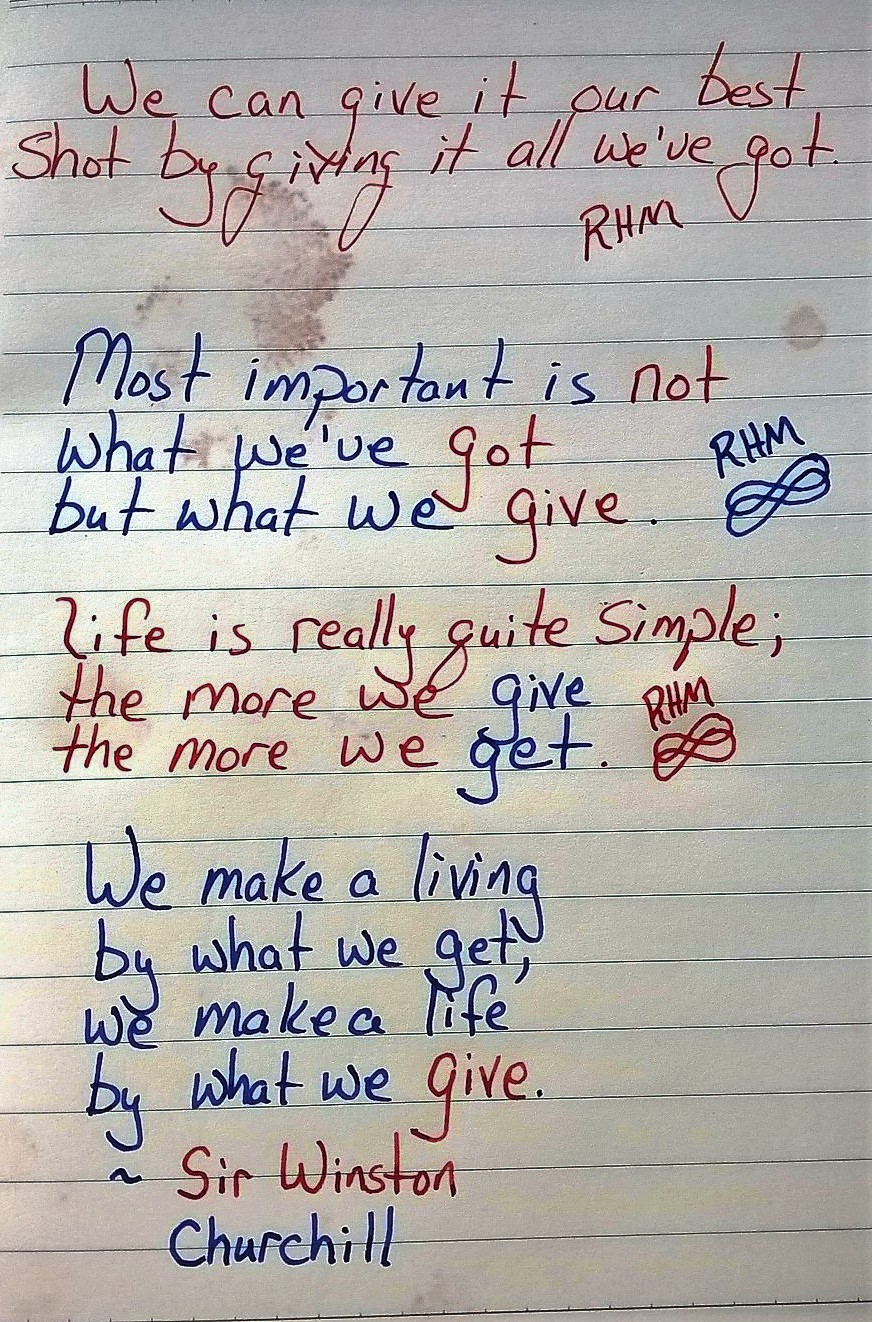 We can give it our best
Shot by giving it all we've got.
RHM
Most important is not
what we've got
but what we give.
RHM
Life is really quite simple;
the more we give
the more we get.
RHM
We make a living
by what we get,
we make a life
by what we give.
~ Sir Winston
Churchill